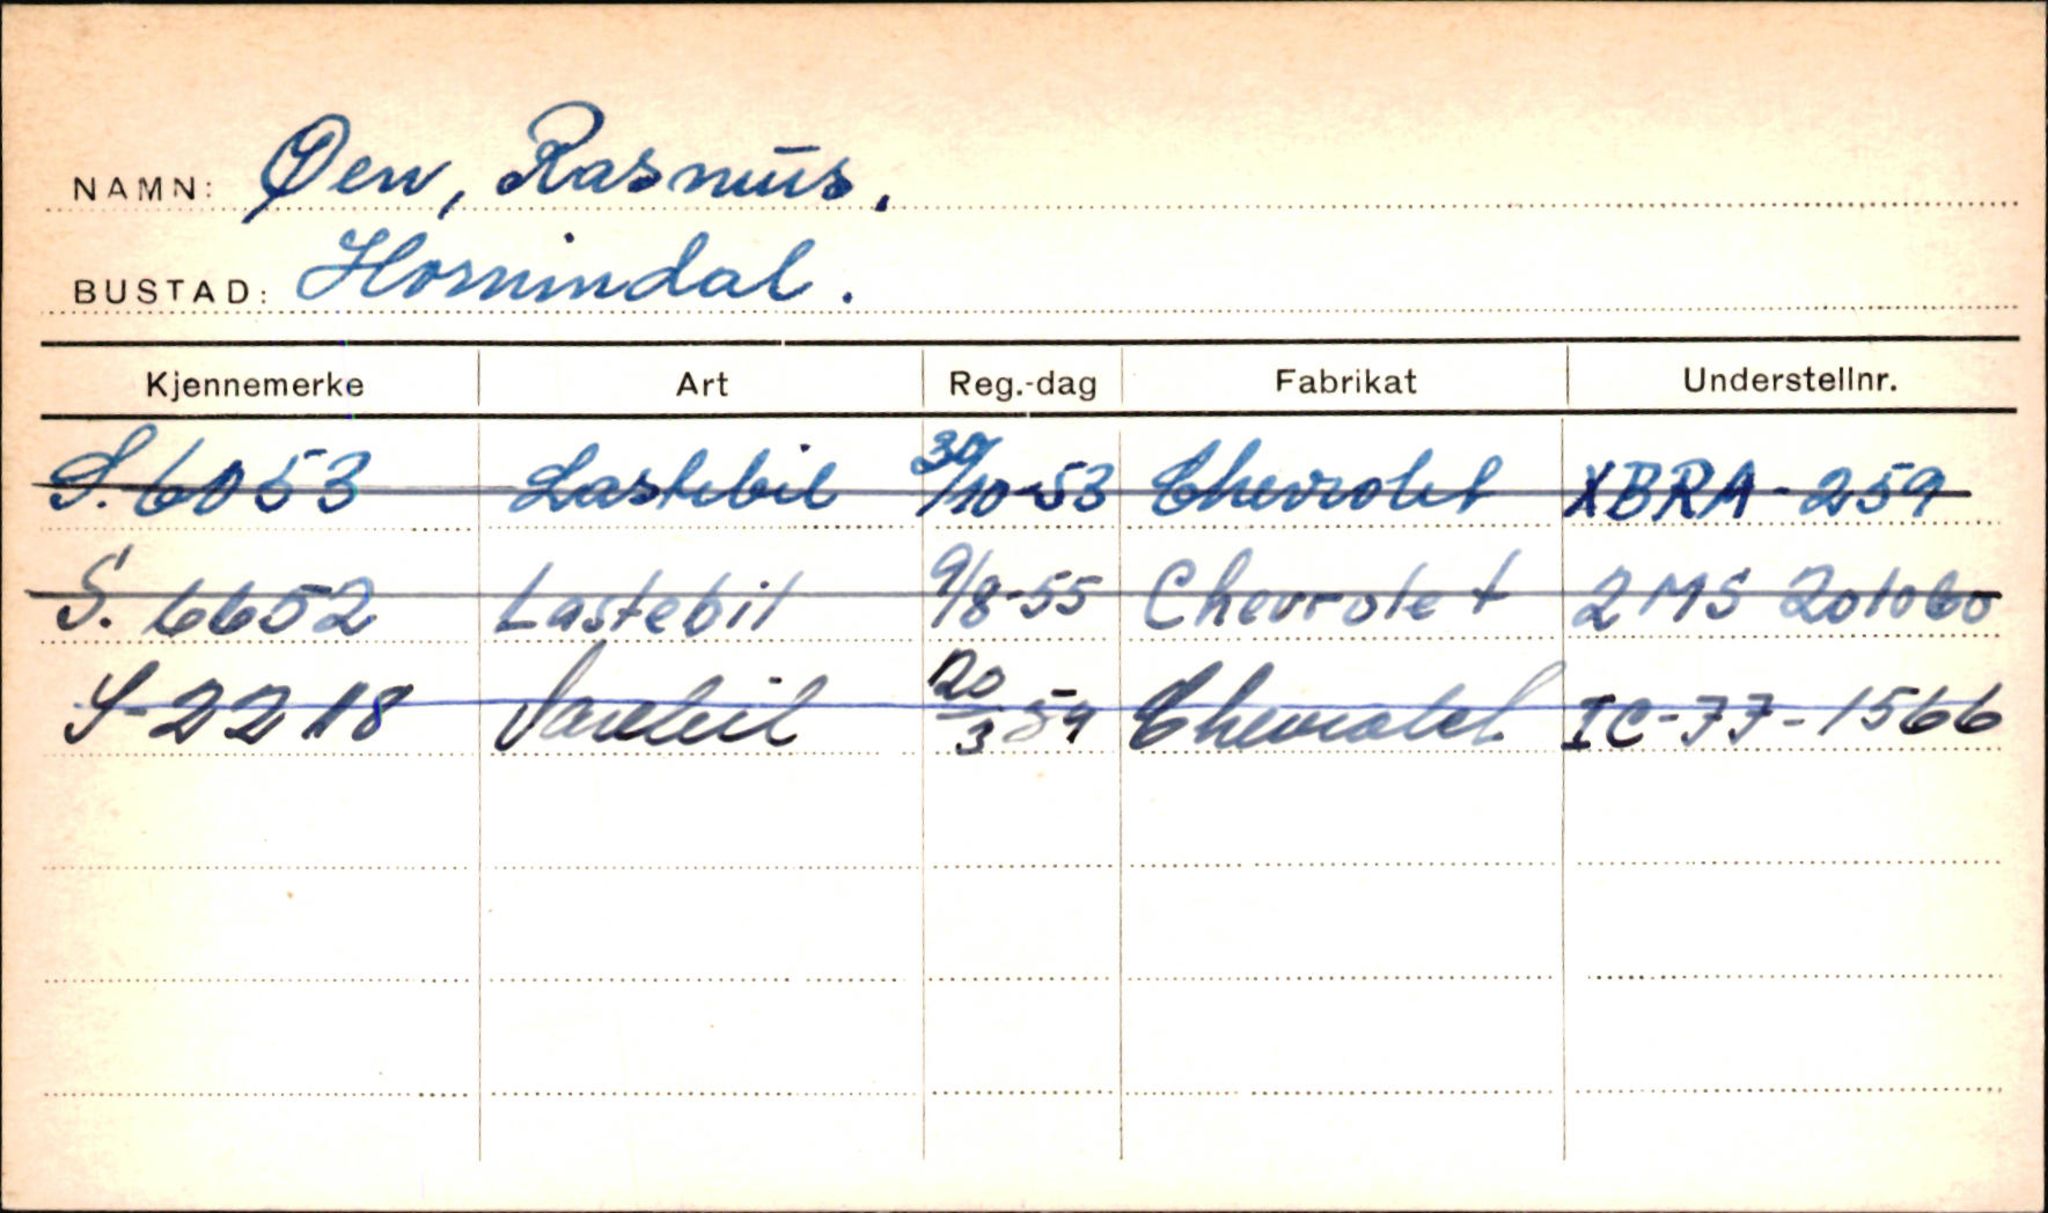 NAMN: Øen, Rasmus.
BUSTAD: Hornindal.
Kjennemerke Art Reg.-dag Fabrikat Understellnr.
S. 6053 Lastebil 30/10-53 Chevrolet XBRA-259
S. 6652 Lastebil 9/8-55 Chevrolet 2MS 201060
S-2218 Varebil 20/3 59 Chevrolet. IC-77-1566